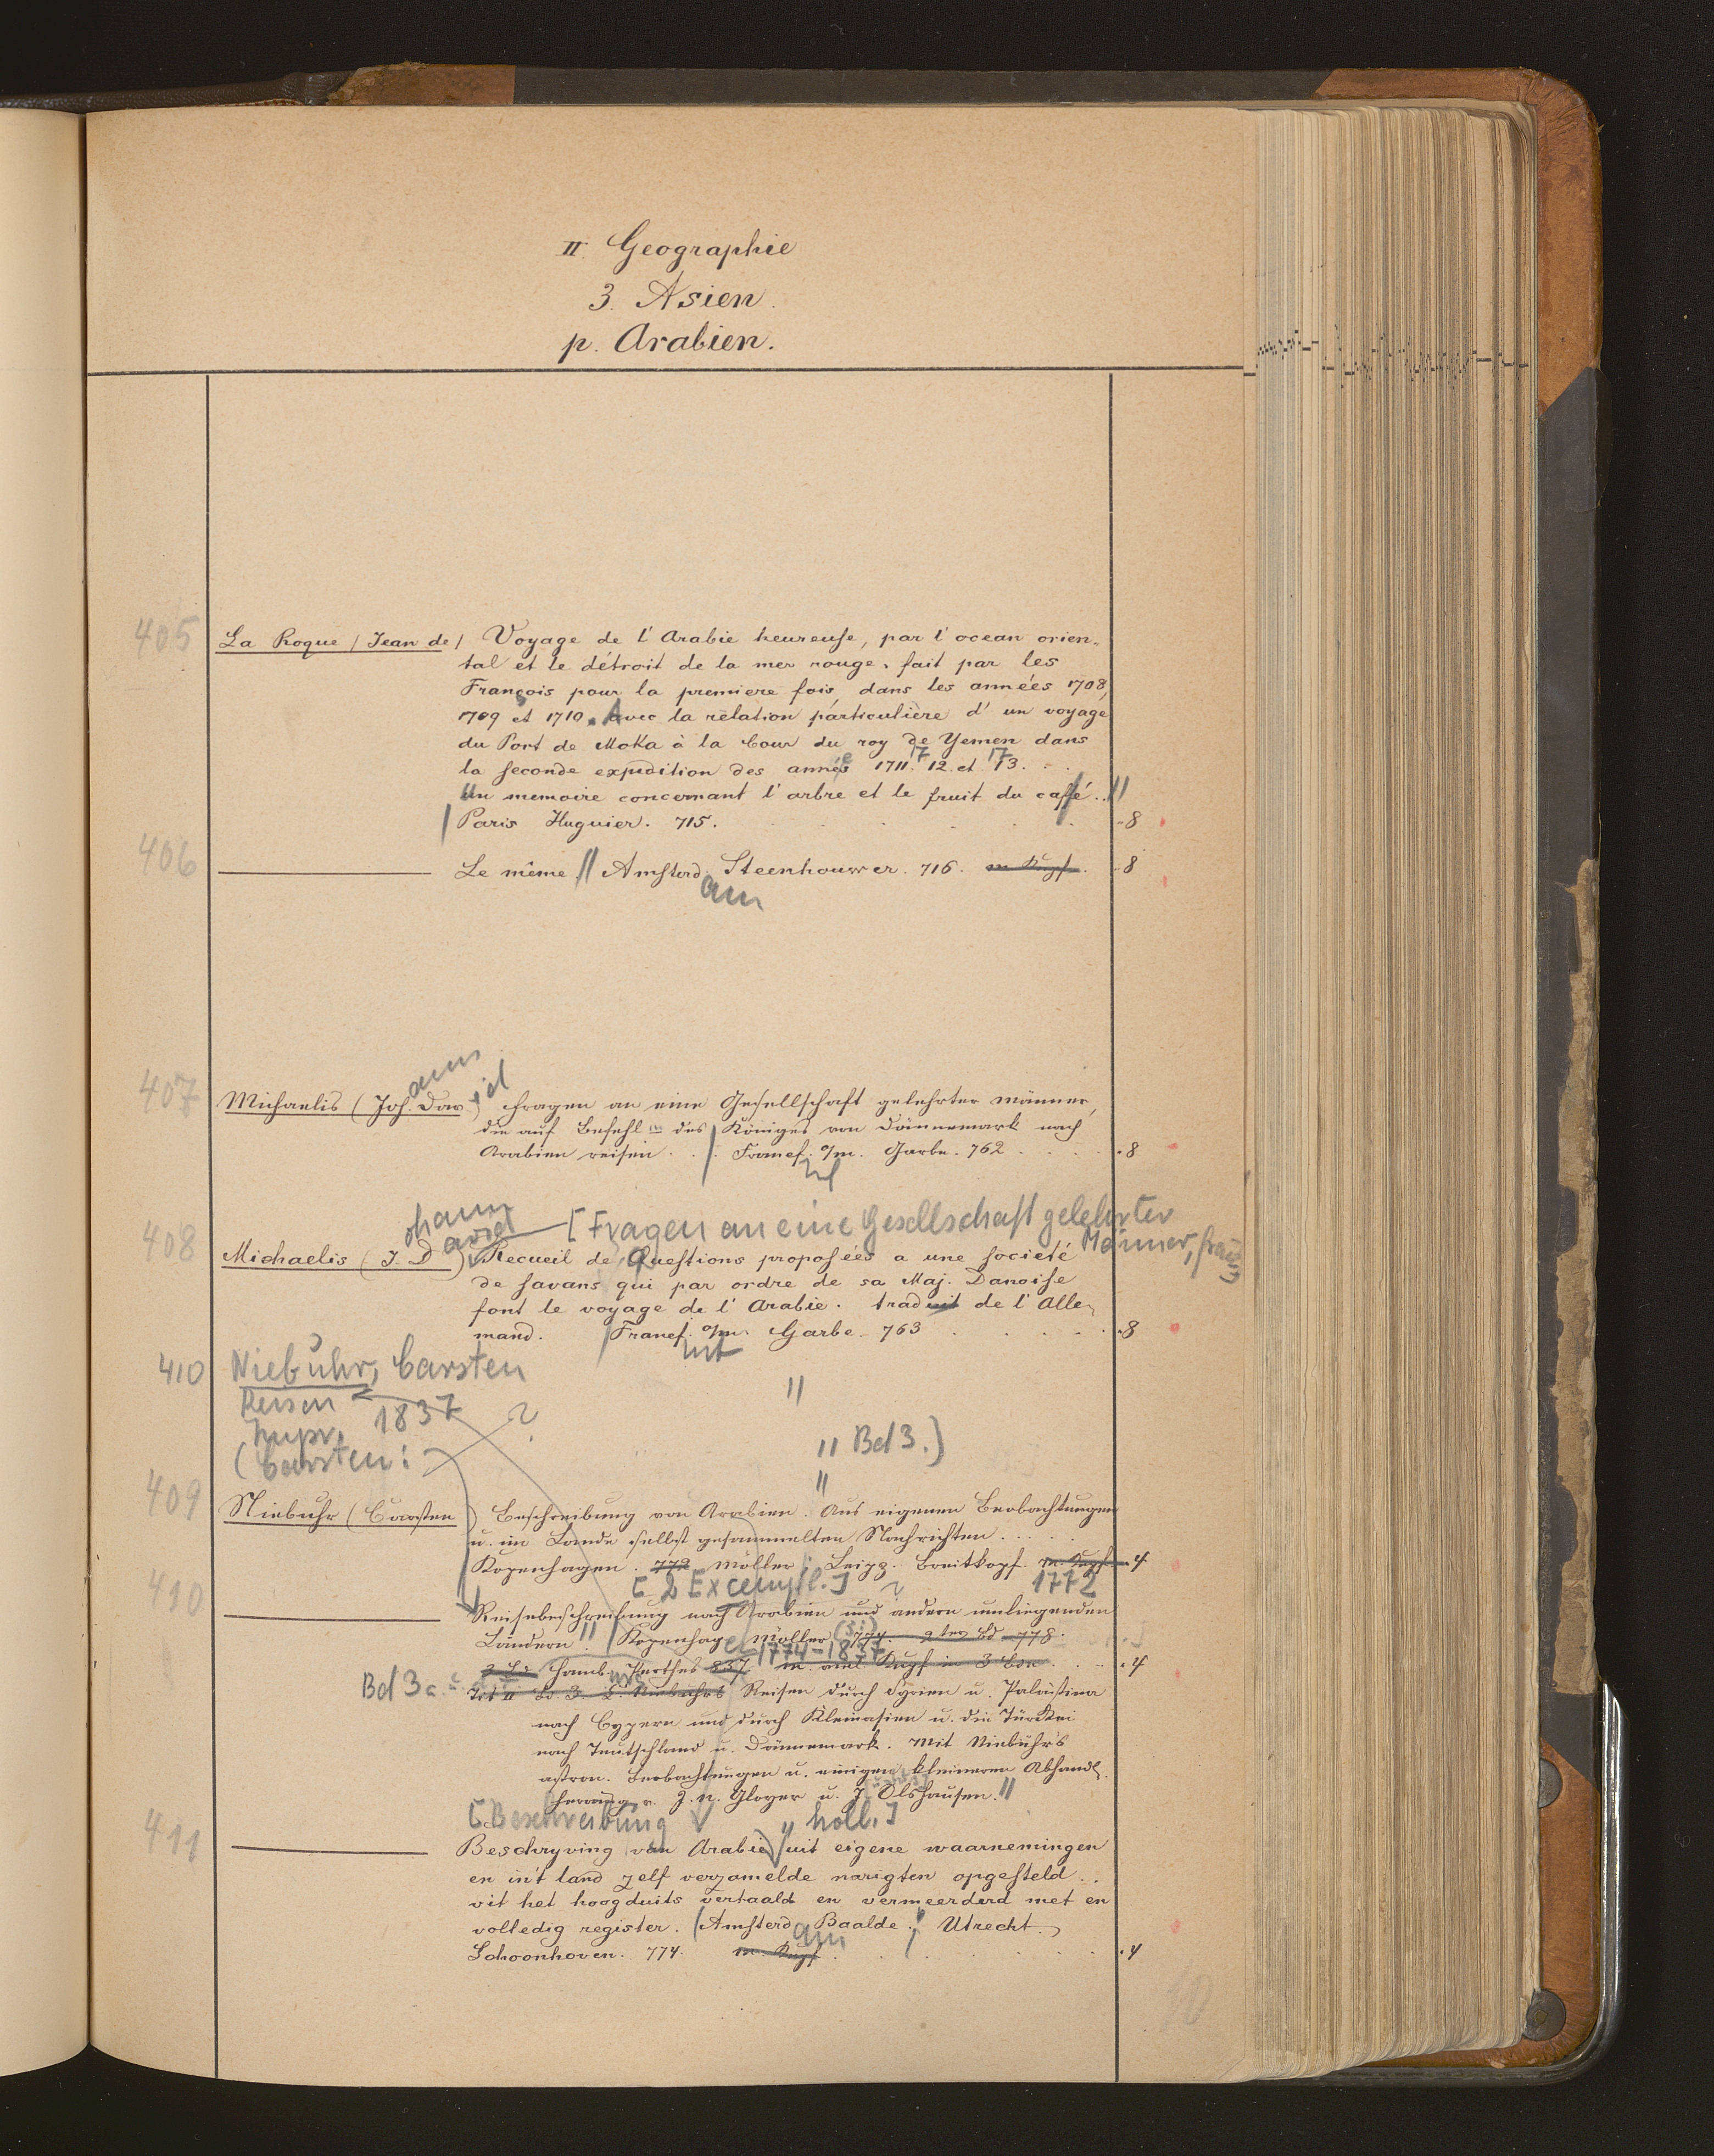 II Geographie
3. Asien.
p. Arabien.
405
La Roque (Jean de) Voyage de l'Arabie heureuse, par l'ocean orien-
tal et le détroit de la mer rouge, fait par les
François pour la premiere fois, dans les années 1708,
1709 et 1710. Avec la rèlation particulière d'un voyage
du Port de Moka à la Cour du roy de Yemen dans
la seconde expedition des année 1711. 1712 et 1713.
Un memoire concernant l'arbre et le fruit du caffé. //
Paris Huguier. 715. 8
406
Le même // Amsterdam Steenhouwer. 716. m Kupf. 8
407
Michaelis (Johann David) Fragen an eine Gesellschaft gelehrter Männer,
die auf Befehl des Königes von Dännemark nach
Arabien reisen. Francf. a/m. Garbe. 762 8
408
[Fragen an eine Gesellschaft gelehrter
Männer, franz.]
Michaelis (Johann David) Recueil de Questions proposées a une societé
de savans qui par ordre de sa Maj. Danoise
font le voyage de l'Arabie. traduit de l'Alle-
mand. Francf. a/m. Garbe. 763 8
410 Niebuhr, Carsten //
Reisen
1837 ?
(Carsten: // Bd 3.)
//
409
Niebuhr (Carsten) Beschreibung von Arabien. Aus eigenen Beobachtungen
u. im Lande selbst gesammelten Nachrichten
Kopenhagen. 772 Möller; Leipz. Breitkopf. m. Kupf. 4
[2 Exempl.] ? 1772
410
Reisebeschreibung nach Arabien und andern umliegenden
Ländern // Kopenhagen Möller 774. 2ter Bd 778.
1774-1837
Hamb. Perthes 837. m. viel Kupf in 3 Bdn. 4
Bd 3
Tit Bd. 3. C. Niebuhrs Reisen durch Syrien u. Palästina
nach Cypern und durch Kleinasien u. die Türkei
nach Teutschland u. Dännemark. Mit Niebuhr's
astron. Beobachtungen u. einigen kleineren Abhandl.
herausg. v. J. N. Gloyer u. J. Olshausen. //
[Beschreibung // holl.]
411
Beschryving van Arabie uit eigene waarnemingen
en in't land zelf verzamelde narigten opgesteld..
uit het hoogduits vertaald en vermeerderd met en
volledig register. (Amsterdam Baalde; Utrecht
Schoonhoven. 774. m. Kupf. 4
10